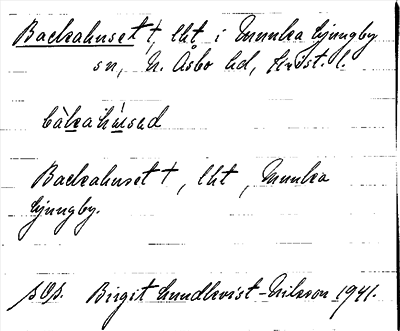 Backahuset †, lht i Munka Ljungby
sn, N. Åsbo hd, Krist. l.
bàkahúsed
Backahuset †, lht, Munka
Ljungby.
Birgit Lundkvist-Nilsson 1941.